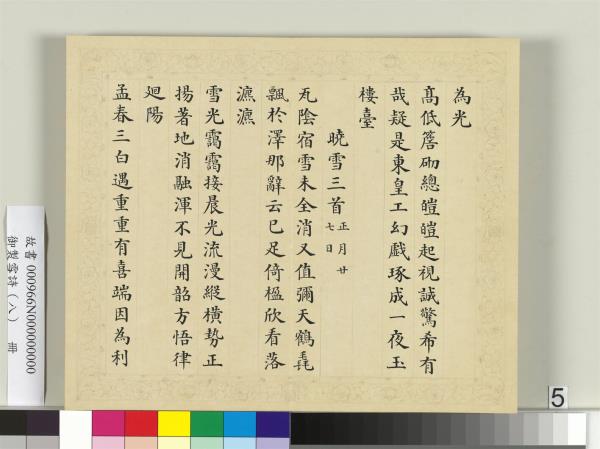 為光
髙低簷砌總皚皚起視誠驚希有
哉疑是東皇工幻戲琢成一夜玉
樓臺
曉雪三首 正月廿七日
瓦陰宿雪未全消又值彌天鶴毳
飄於澤那辭云已足倚楹欣看落
瀌瀌
雪光靄靄接晨光流漫縱橫勢正
揚著地消融渾不見開韶方悟律
廻陽
孟春三白遇重重有喜端因為利
故書 000966N000000000
御製雪詩（八） 冊
5